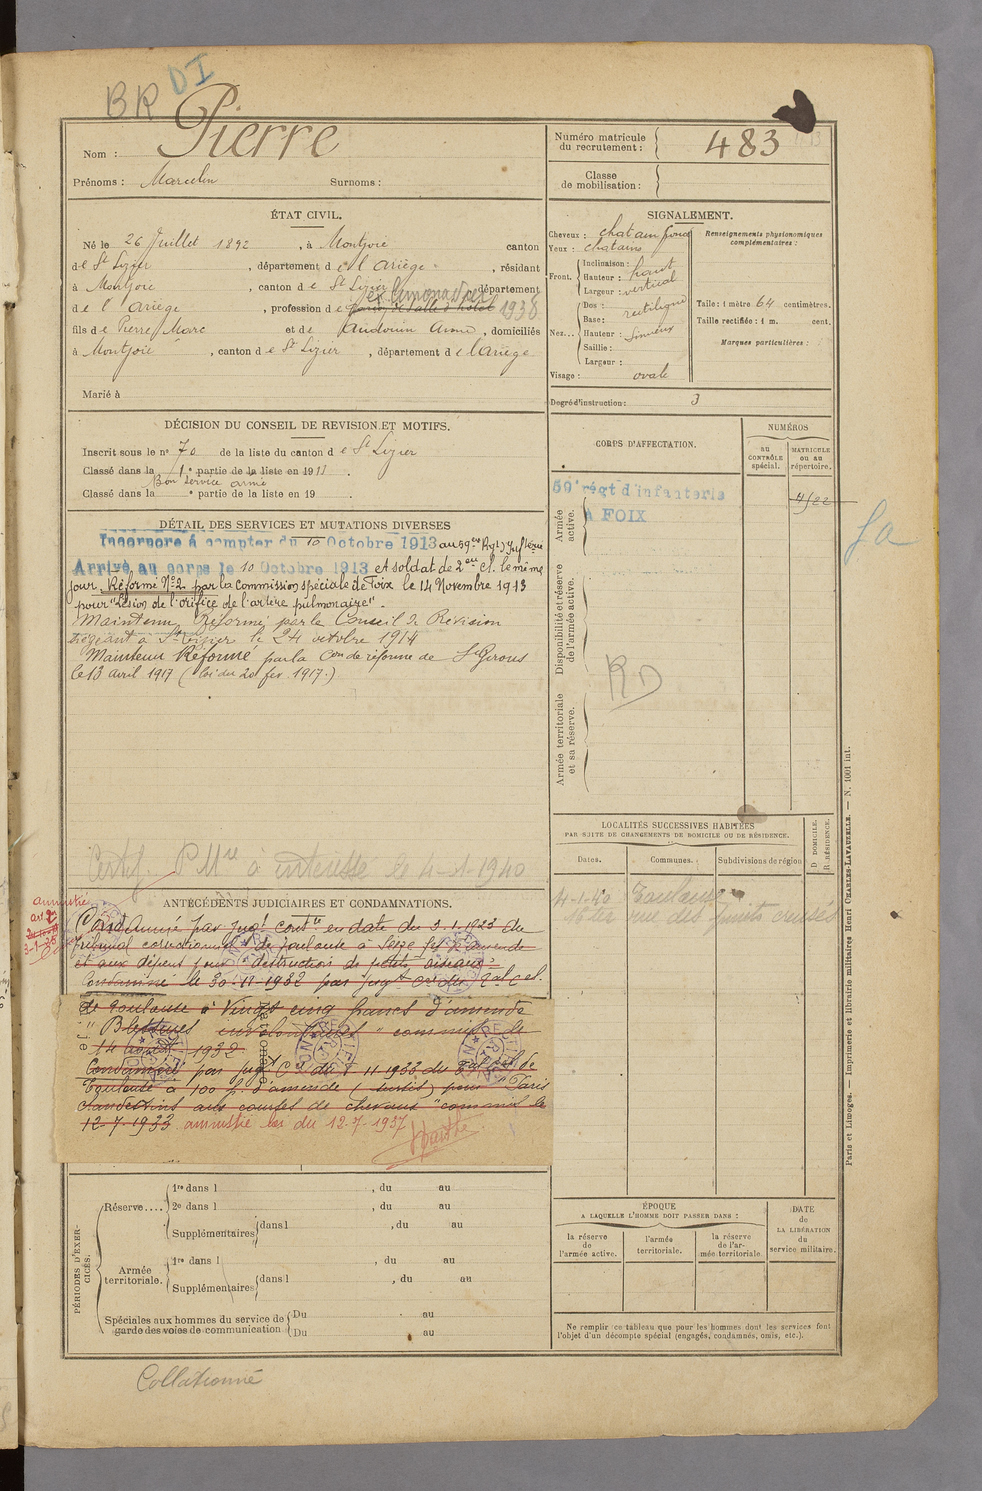 BR DI
Nom : Pierre
Prénoms : Marcelin Surnoms :
Numéro matricule du recrutement : 483
Classe de mobilisation :
ÉTAT CIVIL.
Né le 26 Juillet 1892, à Montjoie canton
de St Lizier, département de l'Ariège, résidant
à Montjoie, canton de St Lizier, département
ex limonadier 1938
de l'Ariège, profession de garçon de salle d'hôtel
fils de Pierre, Marc et de Audouin Anna, domiciliés
à Montjoie, canton de St Lizier, département de l'Ariège
Marié à
SIGNALEMENT.
Cheveux : chatain foncé
Yeux : chatains
Front. Inclinaison :
Hauteur : haut
Largeur : vertical
Nez... Dos : rectiligne
Base :
Hauteur : sinueux
Saillie :
Largeur :
Visage : ovale
Renseignements physionomiques complémentaires :
Taille : 1 mètre 64 centimètres.
Taille rectifiée : 1 m. cent.
Marques particulières :
Degré d'instruction : 3
DÉCISION DU CONSEIL DE REVISION ET MOTIFS.
Inscrit sous le n° 70 de la liste du canton de St Lizier
Classé dans la 1e partie de la liste en 1911.
Bon service armé
Classé dans la e partie de la liste en 19
CORPS D'AFFECTATION.
NUMÉROS
AU CONTRÔLE spécial.
MATRICULE ou au répertoire.
Armée active.
59e régt d'infanterie
A FOIX
4522
Sa
Disponibilité et réserve de l'armée active.
RD
Armée territoriale et sa réserve.
DÉTAIL DES SERVICES ET MUTATIONS DIVERSES
Incorporé à compter du 10 Octobre 1913 au 59eme Rgt d'Infterie
Arrivé au corps le 10 Octobre 1913 et soldat de 2eme cl. le même
jour. Réformé N°2 par la commission spéciale de Foix le 14 Novembre 1913
pour "Lésion de l'orifice de l'artère pulmonaire".
Maintenu Réformé par le Conseil de Révision
siégeant à St Lizier le 24 octobre 1914
Maintenu Réformé par la Con de réforme de St Girons
le 13 avril 1917 (loi du 20 fev. 1917.)
Certif. P Mre à intéressé le 4-1-1940
LOCALITÉS SUCCESSIVES HABITÉES
PAR SUITE DE CHANGEMENTS DE DOMICILE OU DE RÉSIDENCE.
Dates. Communes. Subdivisions de région
D. DOMICILE.
R. RÉSIDENCE.
4-1-40 Toulouse
16 ter rue des puits creusés
ANTÉCÉDENTS JUDICIAIRES ET CONDAMNATIONS.
amnistié
3-1-25
Condamné par jugt contre en date du 3-1-1923 du
Tribunal correctionnel de Toulouse à Seize fcs d'amende
et aux dépens pour "destruction de petits oiseaux"
Condamné le 30-11-1932 par jugt
de Toulouse à Vingt cinq francs d'amende
"Blessures involontaires" commis le
14 1932.
Condamné par jugt 11 1933 du
Toulouse à 100 f. d'amende (sursis) pour "Paris
clandestins aux courses de chevaux" commis le
12-7-1933 amnistié loi du 12-7-1937
PÉRIODES D'EXERCICES.
Réserve.... 1re dans l , du au
2e dans l , du au
Supplémentaires dans l , du au
Armée territoriale. 1re dans l , du au
Supplémentaires dans l , du au
Spéciales aux hommes du service de garde des voies de communication Du au
Du au
ÉPOQUE
A LAQUELLE L'HOMME DOIT PASSER DANS :
la réserve de l'armée active.
l'armée territoriale.
la réserve de l'armée territoriale.
DATE DE LA LIBÉRATION du service militaire.
Ne remplir ce tableau que pour les hommes dont les services font
l'objet d'un décompte spécial (engagés, condamnés, omis, etc.).
Paris et Limoges. — Imprimerie et librairie militaires Henri CHARLES-LAVAUZELLE. — N. 1001 int.
Collationné